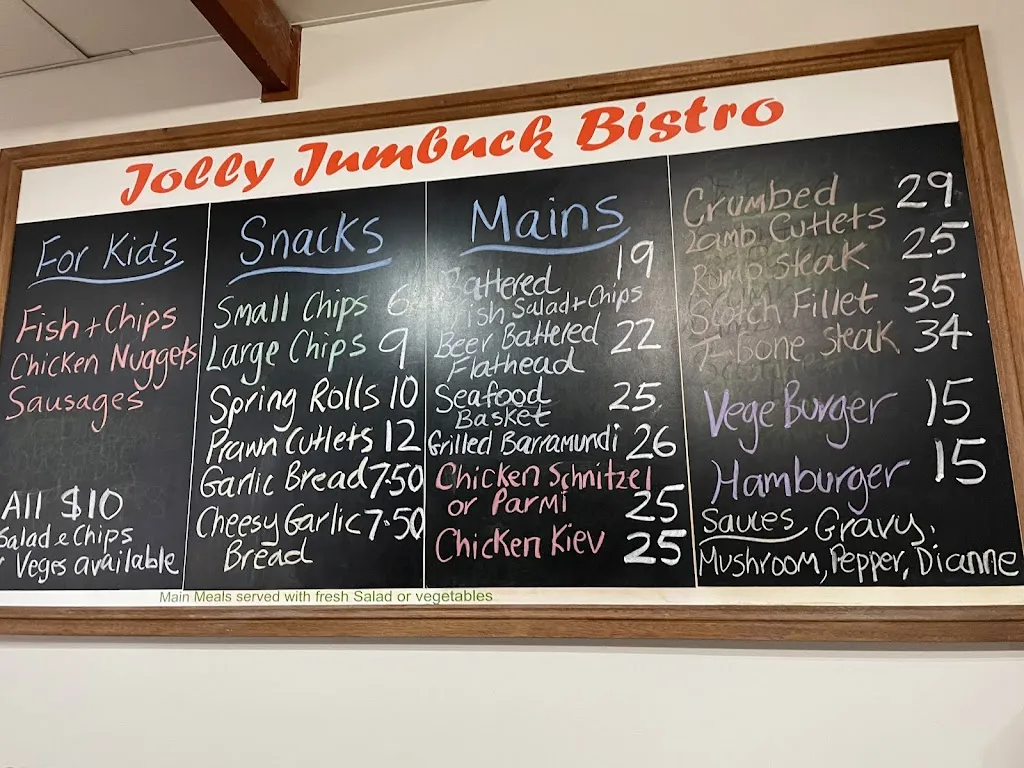 Jolly Jumbuck Bistro
For Kids
Fish + Chips
Chicken Nuggets
Sausages
All $10
Salad & Chips
Veges available
Snacks
Small Chips 6
Large Chips 9
Spring Rolls 10
Prawn Cutlets 12
Garlic Bread 7.50
Cheesy Garlic 7.50
Bread
Mains
Battered 19
Fish Salad + Chips
Beer Battered 22
Flathead
Seafood 25
Basket
Grilled Barramundi 26
Chicken Schnitzel
or Parmi 25
Chicken Kiev 25
Crumbed 29
Lamb Cutlets
Rump Steak 25
Scotch Fillet 35
T-bone Steak 34
Vege Burger 15
Hamburger 15
Sauces Gravy,
Mushroom, Pepper, Dianne
Main Meals served with fresh Salad or vegetables